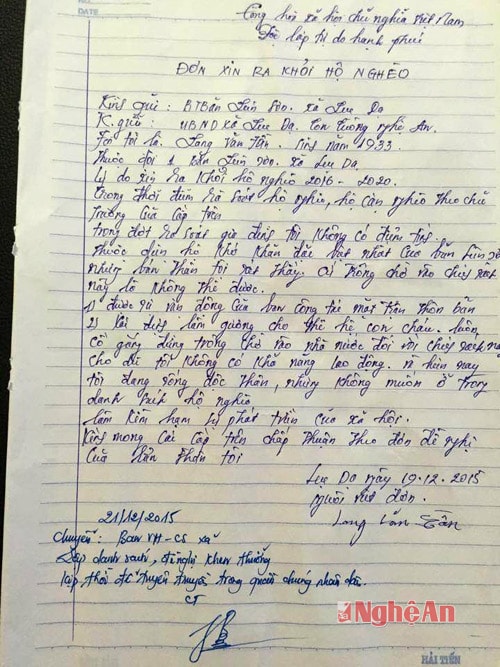 DATE
Cộng hòa xã hội chủ nghĩa Việt Nam
Độc lập tự do hạnh phúc
ĐƠN XIN RA KHỎI HỘ NGHÈO
Kính gửi: BTBản xã Lưu Dạ
K. gửi: UBND xã Lưu Dạ. Con Cuông Nghệ An.
Tên tôi là. Lang Văn Tần. Sinh năm 1933.
Thuộc đội 1 Bản xã Lưu Dạ.
Lý do xin ra khỏi hộ nghèo 2016 - 2020.
Trong thời điểm rà soát hộ nghèo, hộ cận nghèo theo chủ
trương của cấp trên
trong đợt rà soát gia đình tôi không có điểm tính
thuộc diện hộ khó khăn đặc biệt nhất của bản
nhưng bản thân tôi xét thấy. cứ trông chờ vào chính sách
này là không thể được.
1) được sự vận động của ban công tác mặt trận thôn bản
2) lấy làm gương cho thế hệ con cháu. luôn
cố gắng đừng trông chờ vào nhà nước đối với chính sách này
cho dù tôi không có khả năng lao động. vì hiện nay
tôi đang sống độc thân, nhưng không muốn ở trong
danh sách hộ nghèo
làm kìm hãm sự phát triển của xã hội.
Kính mong các cấp trên chấp thuận theo đơn đề nghị
của bản thân tôi
Lưu Dạ ngày 19.12.2015
người viết đơn.
Lang Văn Tần
21/12/2015
Chuyển: Ban VH-CS xã
Lập danh sách, đề nghị khen thưởng
kịp thời để tuyên truyền trong quần chúng nhân dân.
CT
Báo Nghệ An
HẢI TIẾN